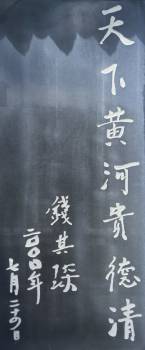 天下黄河貴德清
錢其琛
二〇〇〇年
七月二十四日